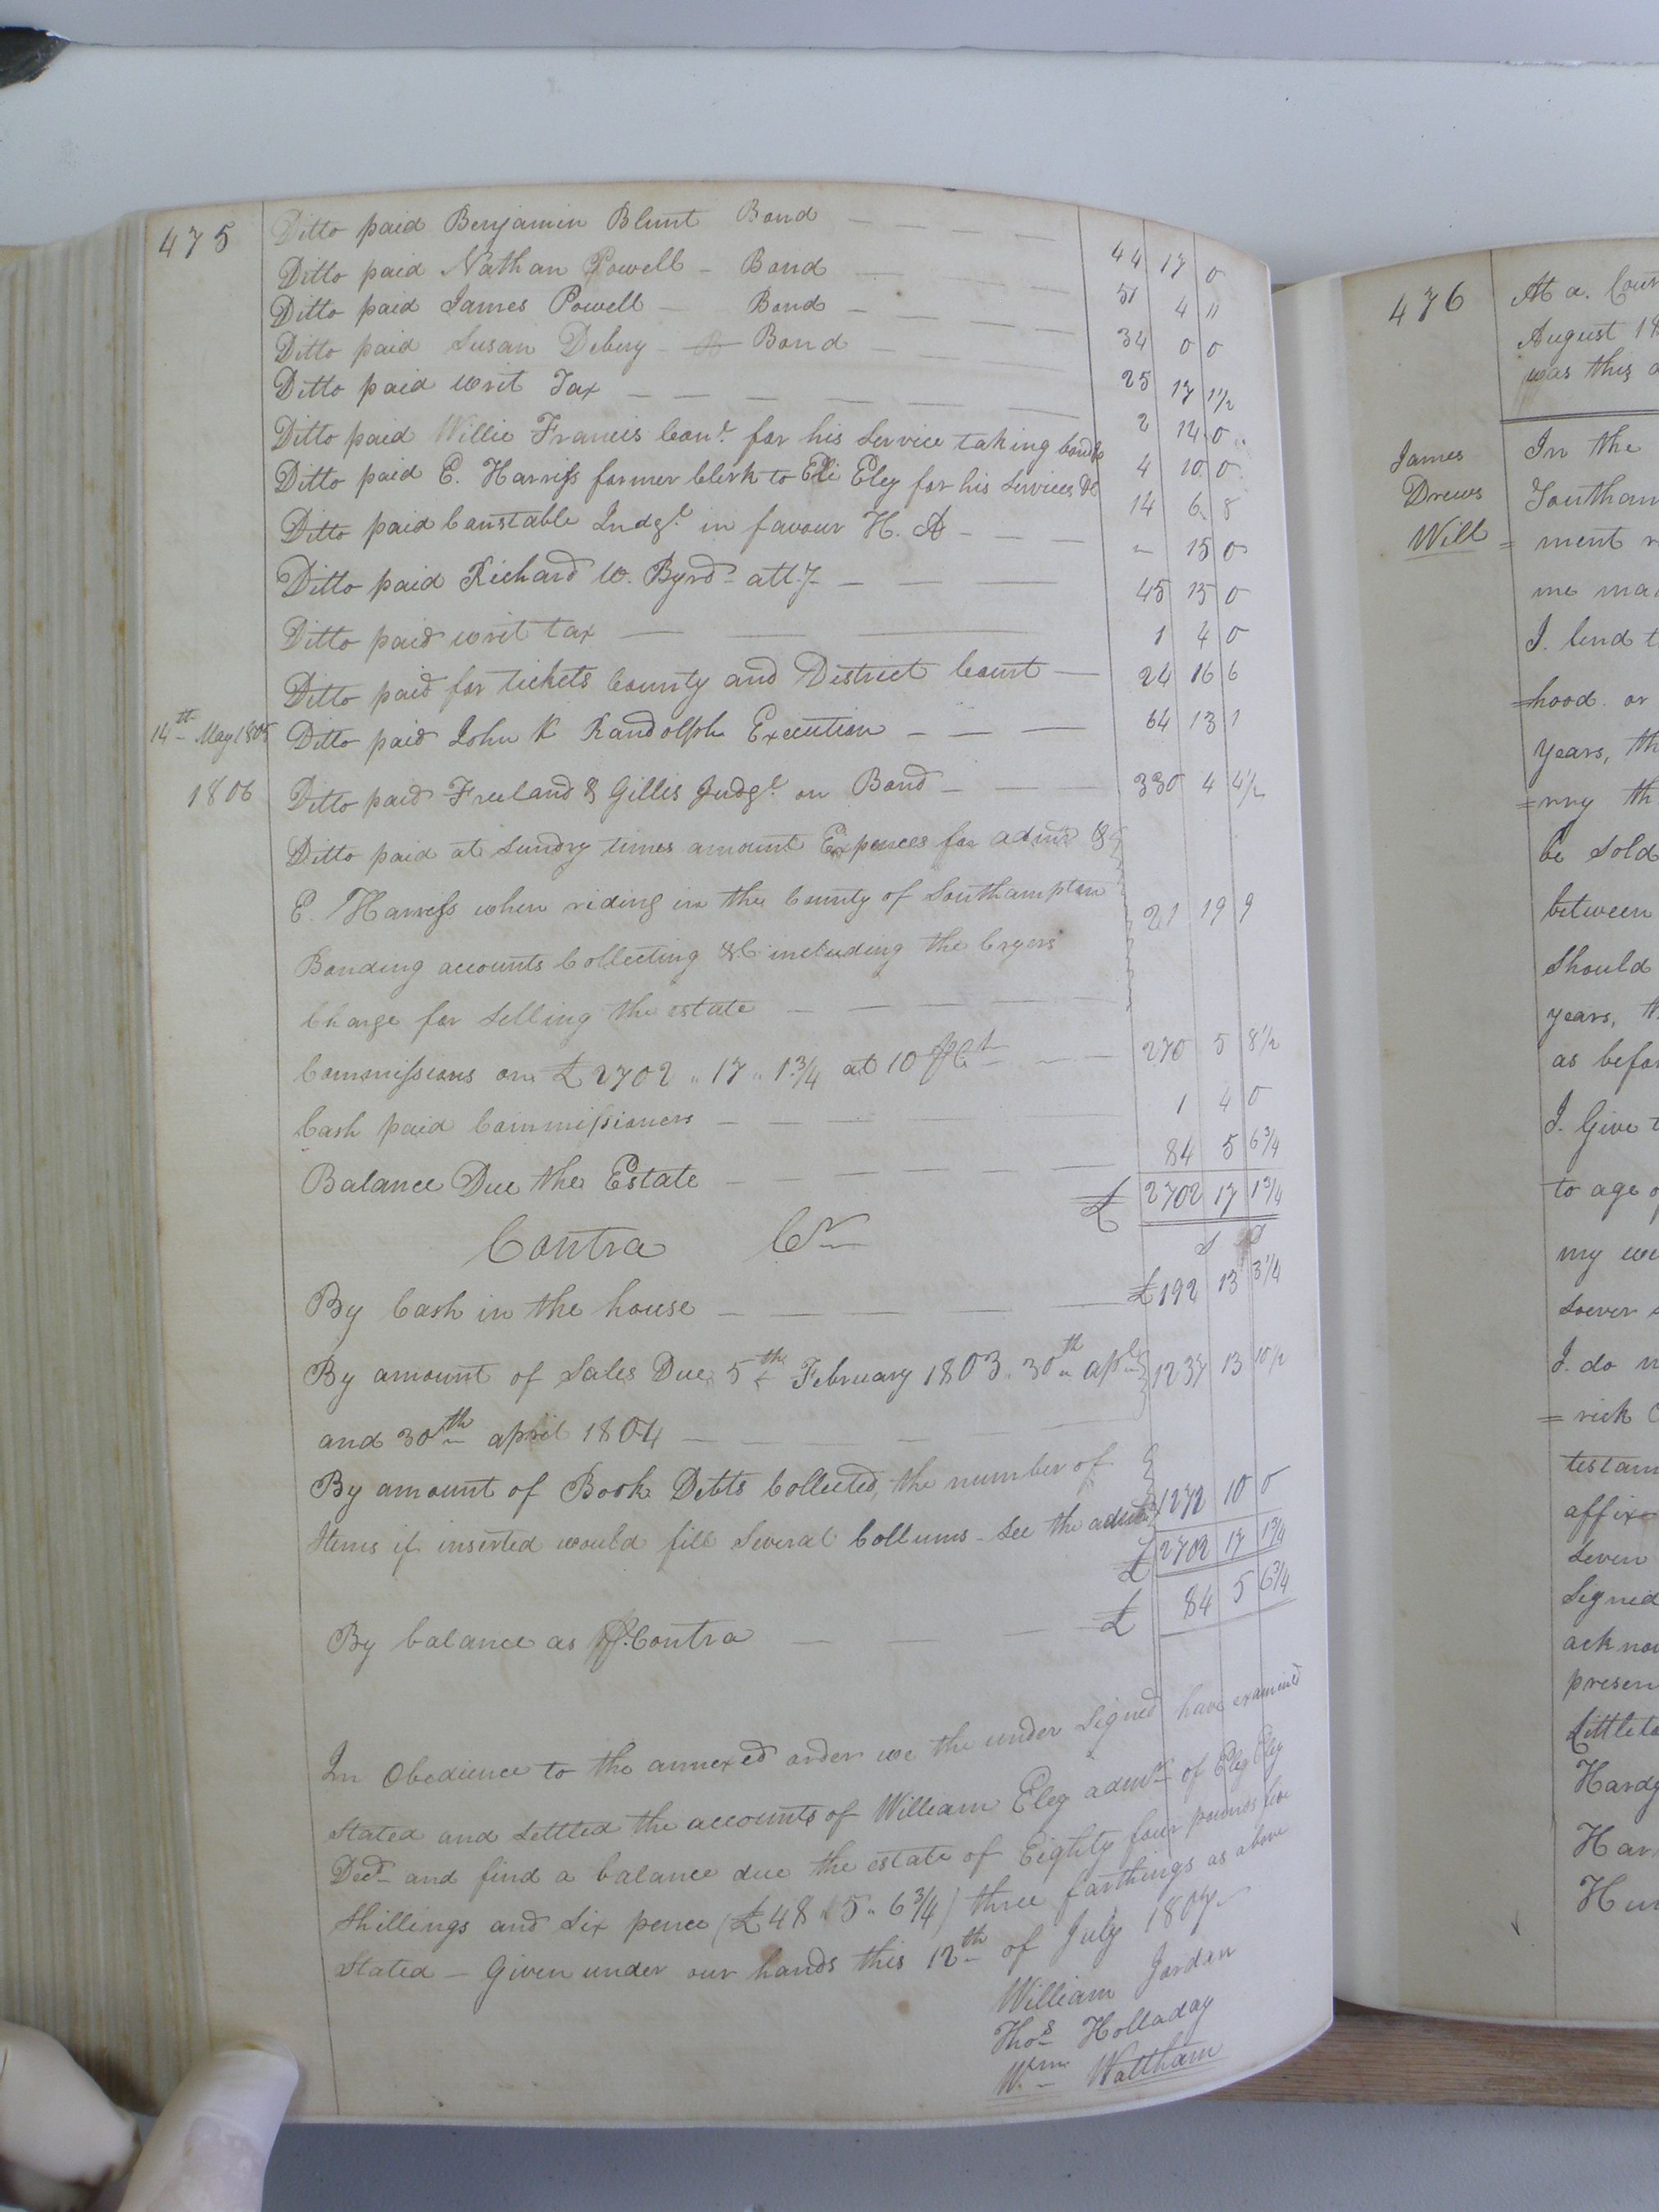 475
Ditto paid Benjamin Blunt Bond — 44 17 0
Ditto paid Nathan Powell - Bond — 51 4 "
Ditto paid James Powell - Bond — 34 0 0
Ditto paid Susan Debery - Bond — 25 17 1½
Ditto paid writ Tax — 2 14 0
Ditto paid Willie Francis Conr. for his Service taking bonds 4 10 0
Ditto paid E. Harriss former Clerk to Eli Eley for his Services Do 14 6 8
Ditto paid Constable Judgt. in favour H. A — " 15 0
Ditto paid Richard W. Byrd atty — 45 15 0
Ditto paid writ tax — 1 4 0
Ditto paid for tickets County and District Court — 24 16 6
14th May 1805 Ditto paid John K Randolph Execution — 64 13 1
1806 Ditto paid Freeland & Gillis Judgt. on Bond — 330 4 4½
Ditto paid at Sundry times amount Expences for admr &
E. Harriss when riding in the County of Southampton
Bonding accounts Collecting &C including the Cryers 21 19 9
Charge for Selling the estate —
Commissions on £2702 " 17 " 1¾ at 10 ⅌Ct — 270 5 8½
Cash paid Commissioners — 1 4 0
Balance Due the Estate — 84 5 6¾
£ 2702 17 1¾
Contra Cr
S D
By Cash in the house — £192 13 3¼
By amount of Sales Due 5th February 1803. 30th apl 1237 13 10½
and 30th april 1804 —
By amount of Book Debts Collected, the number of
Items if inserted would fill Several Collums - See the 1272 10 0
£ 2702 17 1¾
By balance as ⅌. Contra — £ 84 5 6¾
In Obedience to the annexed order we the under Signed have examined
Stated and Settled the accounts of William Eley admr of Eley
Decd and find a balance due the estate of Eighty four pounds five
Shillings and Six pence (£48 " 5 " 6¾) three farthings as above
Stated — Given under our hands this 12th of July 1807
William Jordan
Thos Holladay
Wm Waltham
476
At a. Cour
August 18
was this
James
Drews
Will
In the
Southam
= ment
me ma
I. lend t
=hood. or
years, th
=rry th
be Sold
between
Should
years, th
as befo
I. Give t
to age
my
Soever
I. do
= rick
testam
affixe
Seven
Signed
acknow
presen
Littleto
Hardy
Har